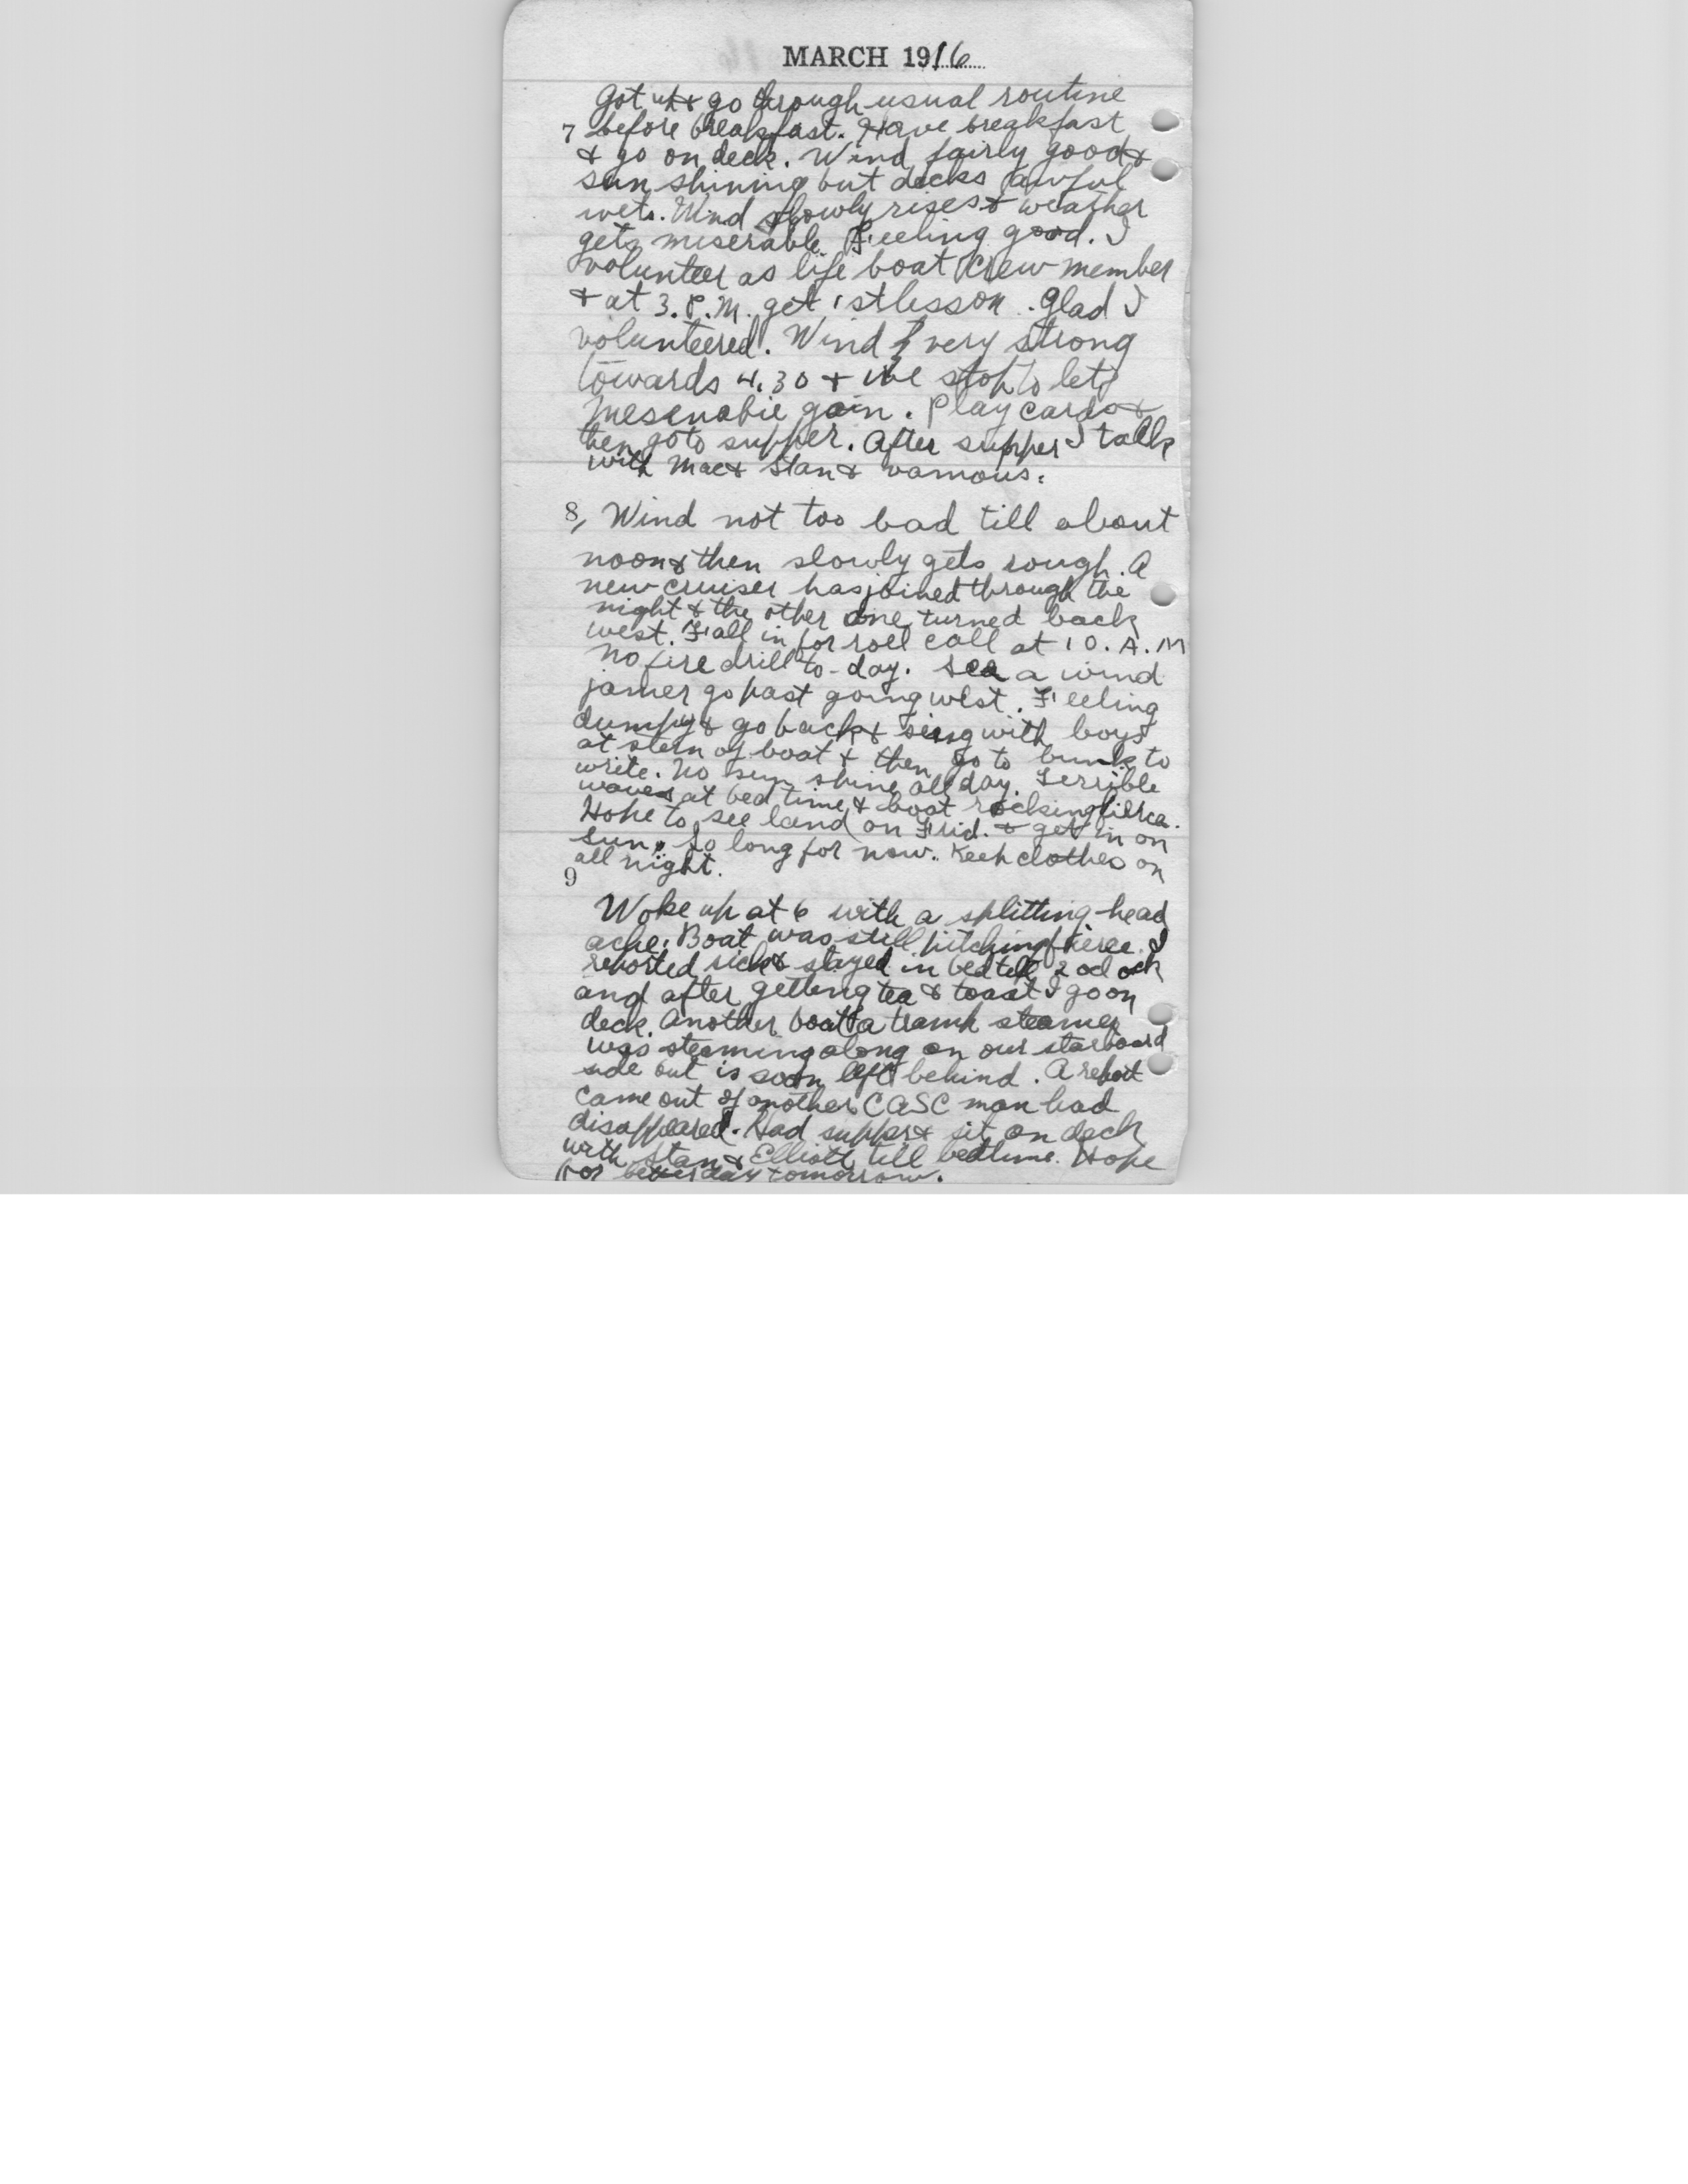 MARCH 1916
Got up & go through usual routine
7 before breakfast. Have breakfast
& go on deck. Wind fairly good &
sun shining but decks awful
wet. Wind slowly rises & weather
gets miserable. Feeling good. I
volunteer as life boat crew member
& at 3. P.M. get 1st lesson. Glad I
volunteered. Wind very strong
towards 4.30 & we stop to let
Mesenabie gain. Play cards &
then go to supper. After supper I talk
with Mac & Stan & vamous.
8, Wind not too bad till about
noon & then slowly gets rough. A
new cruiser has joined through the
night & the other one turned back
west. Fall in for roll call at 10. A.M
No fire drill to-day. See a wind
jamer go past going west. Feeling
dumpy & go back & sing with boys
at stern of boat & then go to bunk to
write. No sun shine all day. Terrible
waves at bed time & boat rocking fierce.
Hope to see land on Frid. & get in on
Sun. So long for now. Keep clothes on
all night.
9
Woke up at 6 with a splitting head
ache. Boat was still pitching fierce. I
reported sick & stayed in bed till 2 oclock
and after getting tea & toast I go on
deck. Another boat a tramp steamer
was steaming along on our starboard
side but is soon left behind. A report
came out of another CASC man had
disappeared. Had supper & sit on deck
with Stan & Elliott till bedtime. Hope
for better day tomorrow.